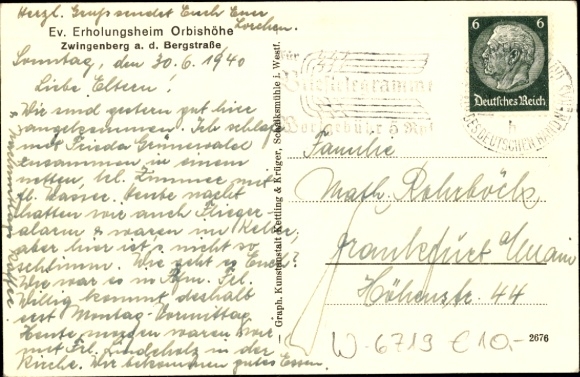 Herzl. Gruß sendet Euch Euer
Lorchen.
Ev. Erholungsheim Orbishöhe
Zwingenberg a. d. Bergstraße
Sonntag, den 30.6.1940
Liebe Eltern!
Wir sind gestern gut hier
angekommen. Ich schlaf
mit Frieda
zusammen in einem
netten, kl. Zimmer mit
fl. Wasser. Heute nacht
hatten wir auch Flieger-
alarm & waren im Keller,
aber hier ist's nicht so
schlimm. Wie geht es Euch?
Wie war es in Frl.
Willig kommt deshalb
erst Montag-Vormittag.
Heute morgen waren wir
mit Frl. in der
Kirche. Wir bekommen gutes Essen
Graph. Kunstanstalt Kettling & Krüger, Schalksmühle i. Westf.
6 6
Deutsches Reich
für
Wortgebühr 3 Rpf
DES DEUTSCHEN
b
Familie
Math. Rohrböck
Frankfurt a/Main
Höhenstr. 44
W-6719 € 10,-
2676